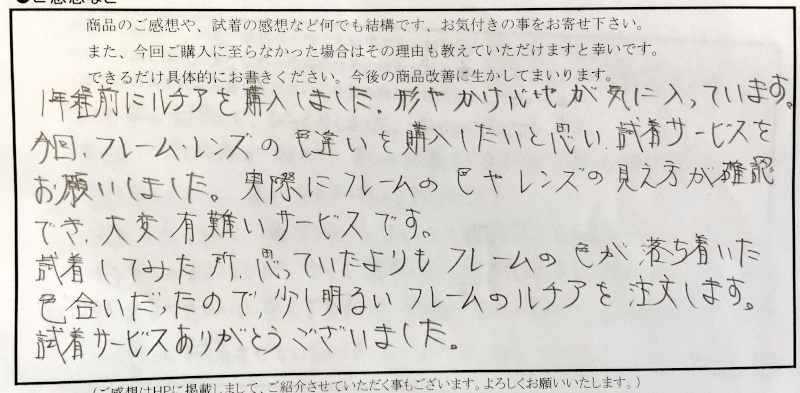 商品のご感想や、試着の感想など何でも結構です、お気付きの事をお寄せ下さい。
また、今回ご購入に至らなかった場合はその理由も教えていただけますと幸いです。
できるだけ具体的にお書きください。今後の商品改善に生かしてまいります。
1年程前にルチアを購入しました。形やかけ心地が気に入っています。
今回、フレーム・レンズの色違いを購入したいと思い、試着サービスを
お願いしました。実際にフレームの色やレンズの見え方が確認
でき、大変有難いサービスです。
試着してみた所、思っていたよりもフレームの色が落ち着いた
色合いだったので、少し明るいフレームのルチアを注文します。
試着サービスありがとうございました。
(ご感想はHPに掲載しまして、ご紹介させていただく事もございます。よろしくお願いいたします。)